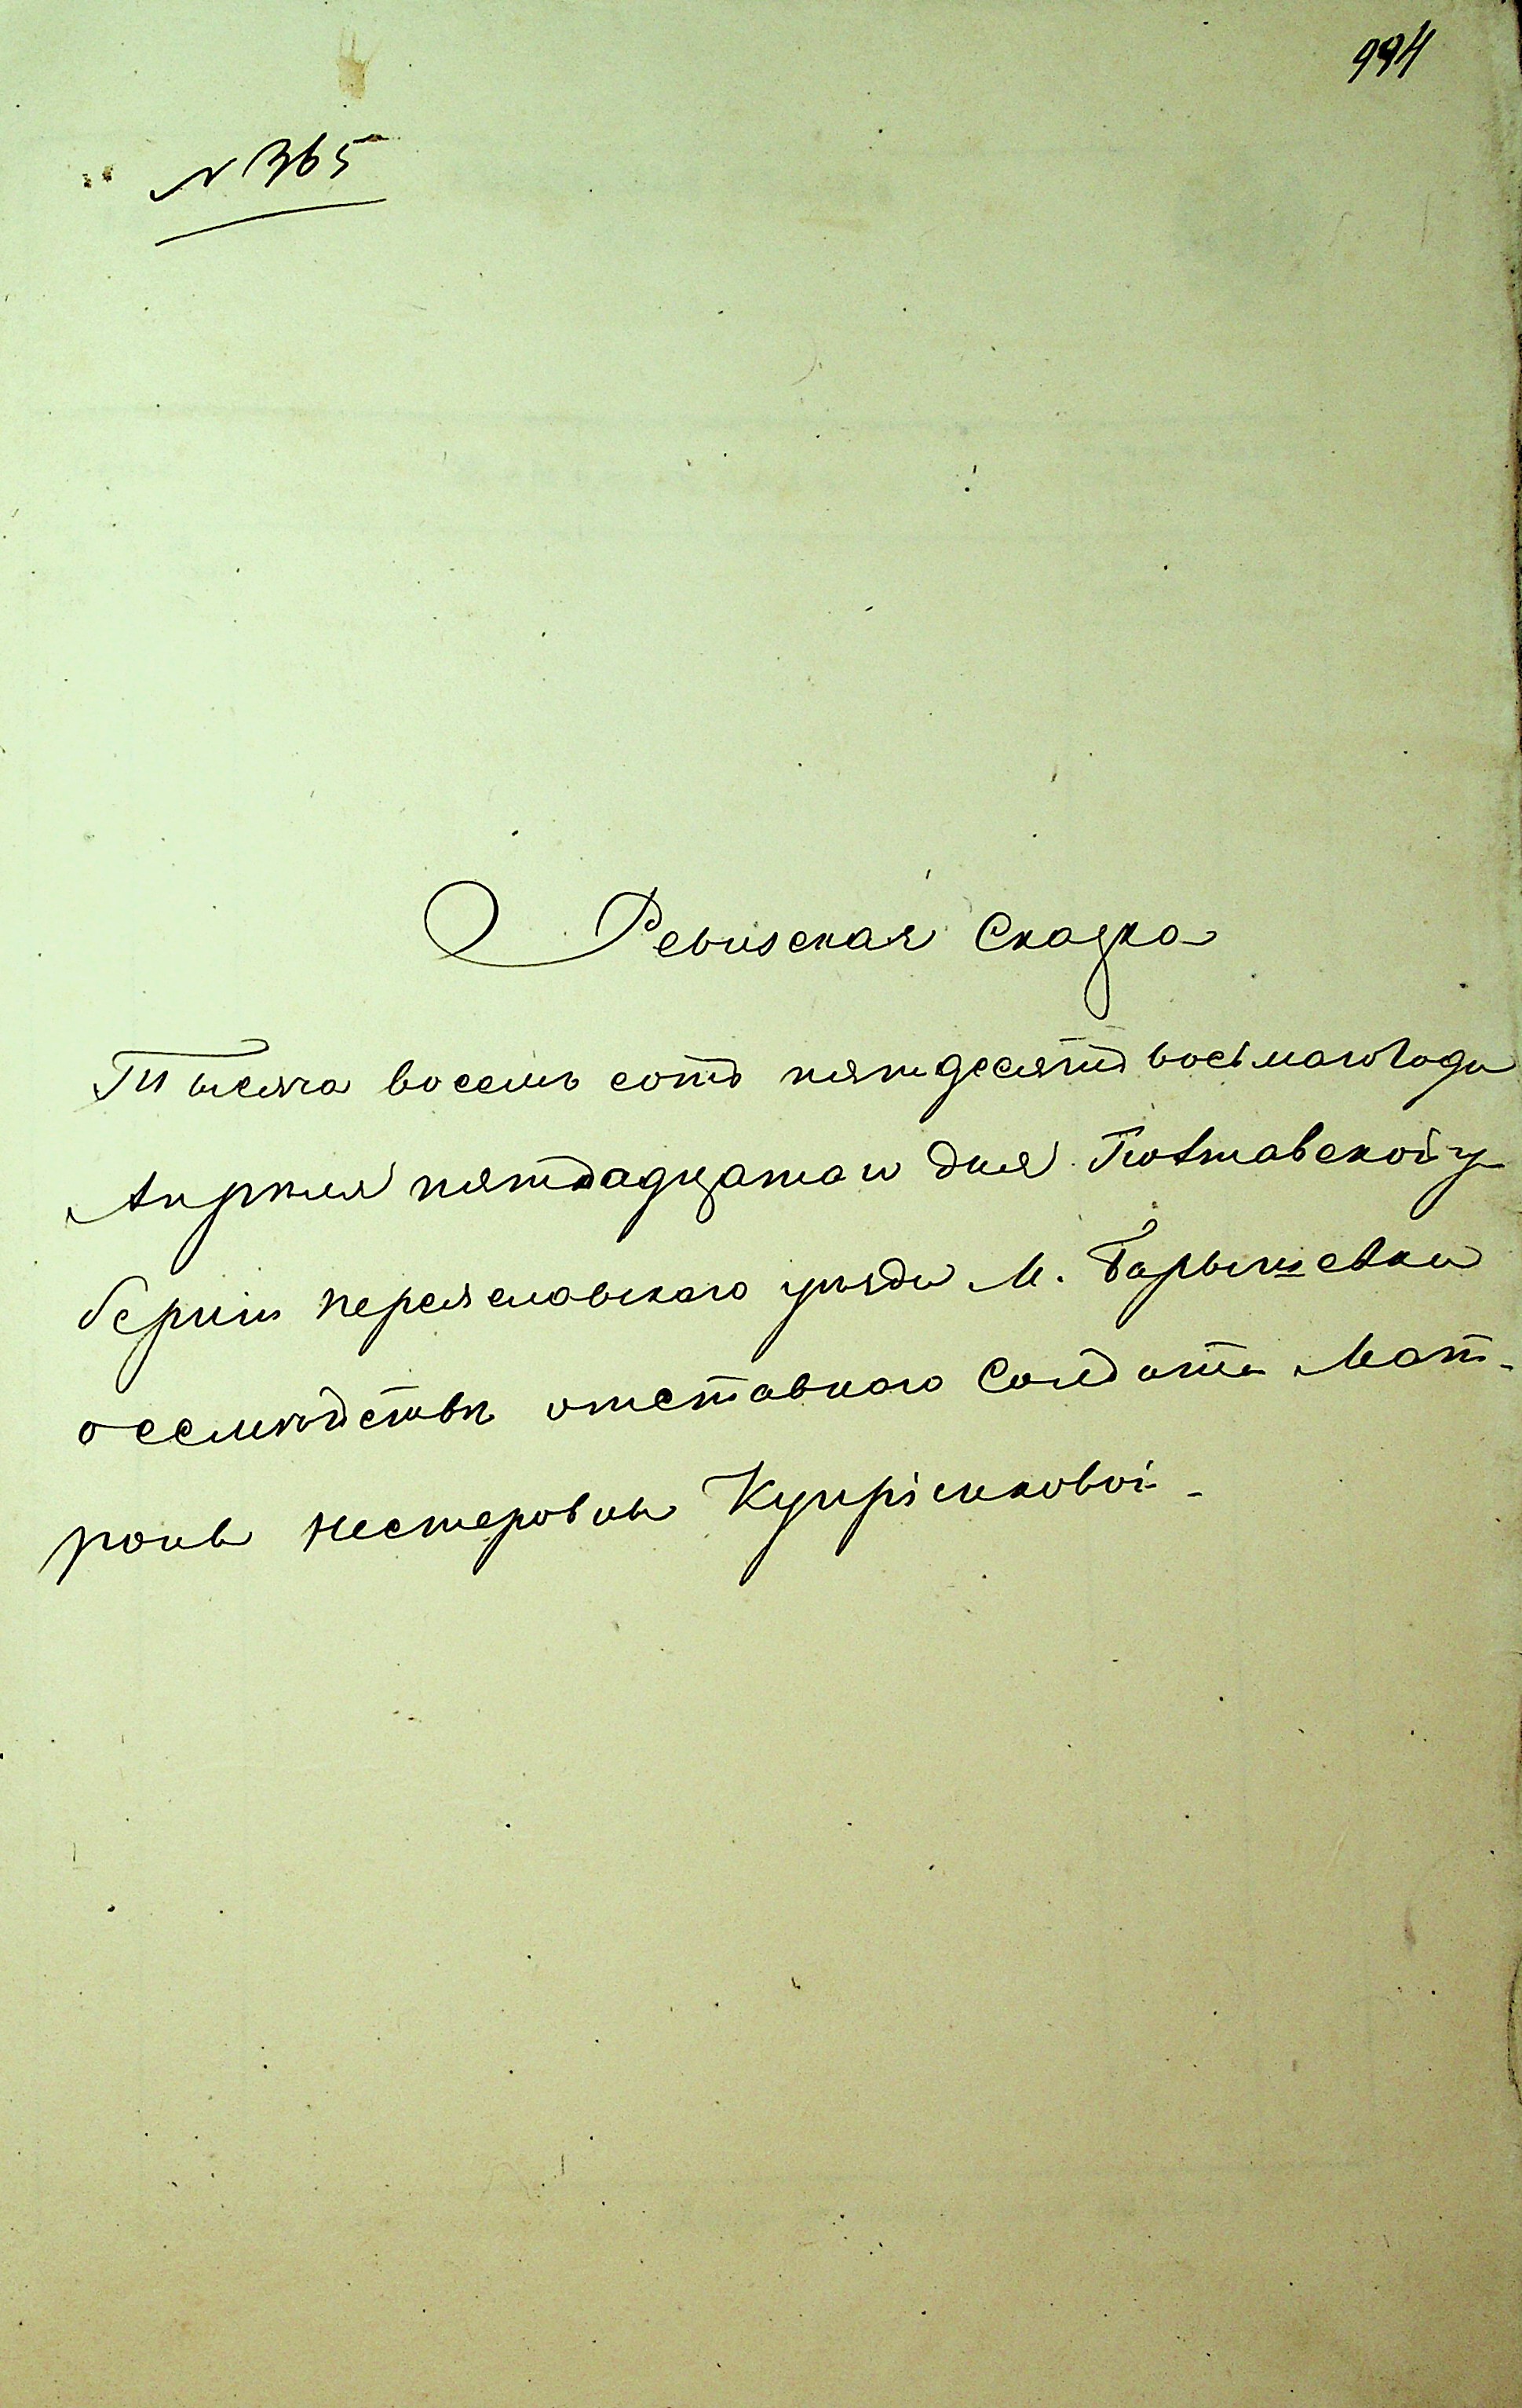 994
№ 365
Ревизская Сказка
Тысяча восемь сотъ пятдесятъ восьмого года
Апреля пятнадцатого дня Полтавской гу
берніи Переяславского уезда М. Барышевки
о семействе отставного Солдата Мат-
роны Нестеровны Купріенковой.